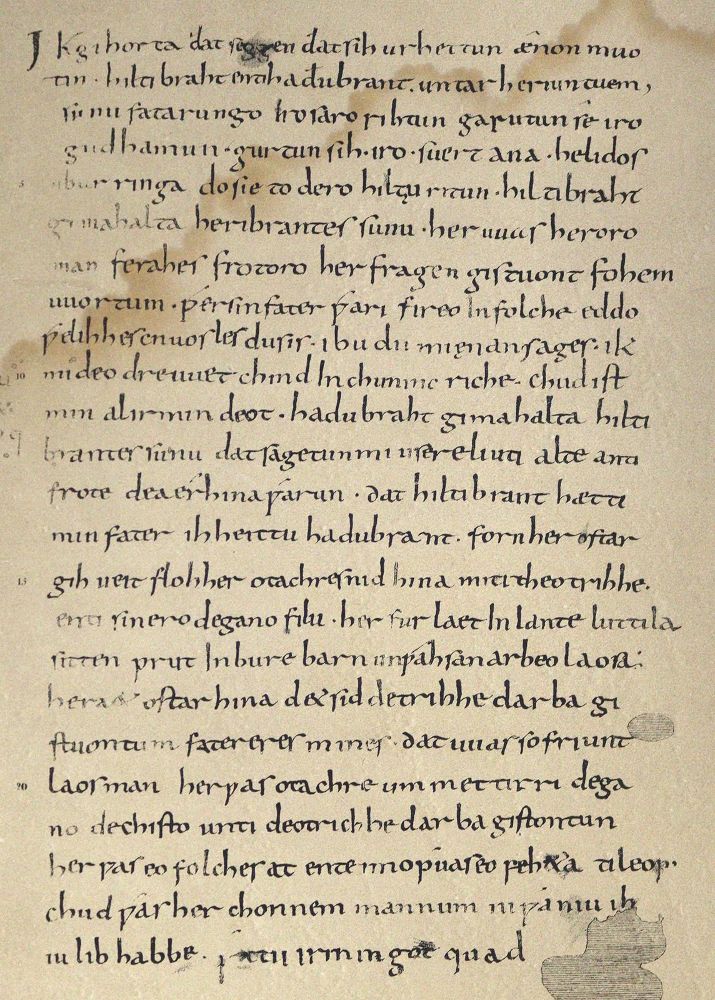 Ik gihorta dat seggen dat sih urhettun ænon muo
tin · hiltibraht enti hadubrant · untar heriun tuem,
sunu fatarungo iro saro rihtun garutun se iro
gudhamun · gurtun sih · iro · suert ana · helidos
5 ubar ringa do sie to dero hiltu ritun · hiltibraht
gimahalta heribrantes sunu · her uuas heroro
man ferahes frotoro her fragen gistuont fohem
uuortum · ƿer sin fater ƿari fireo In folche eddo
ƿelihhes cnuosles du sis · ibu du mi ęnan sages · ik
10 mi de odre uuet chind In chunincriche · chud ist
min al irmindeot · hadubraht gimahalta hilti
brantes sunu dat sagetun mi usere liuti alte anti
frote dea érhina ƿarun · dat hiltibrant hætti
min fater ih heittu hadubrant · forn her ostar
15 gihueit floh her otachres nid hina miti theotrihhe ·
enti sinero degano filu · her furlaet In lante luttila
sitten prut In bure barn unƿahsan arbeo laosa ·
heraet ostar hina det sid detrihhe darba gi
stuontum fatereres mines · dat uuas so friunt
20 laos man her ƿas otachre ummettirri dega
no dechisto unti deotrichhe darba gistontun
her ƿas eo folches at ente imo ƿuas eo ƿeheta ti leop ·
chud ƿas her chonnem mannum ni ƿaniu ih
iu lib habbe · ƿettu irmingot quad